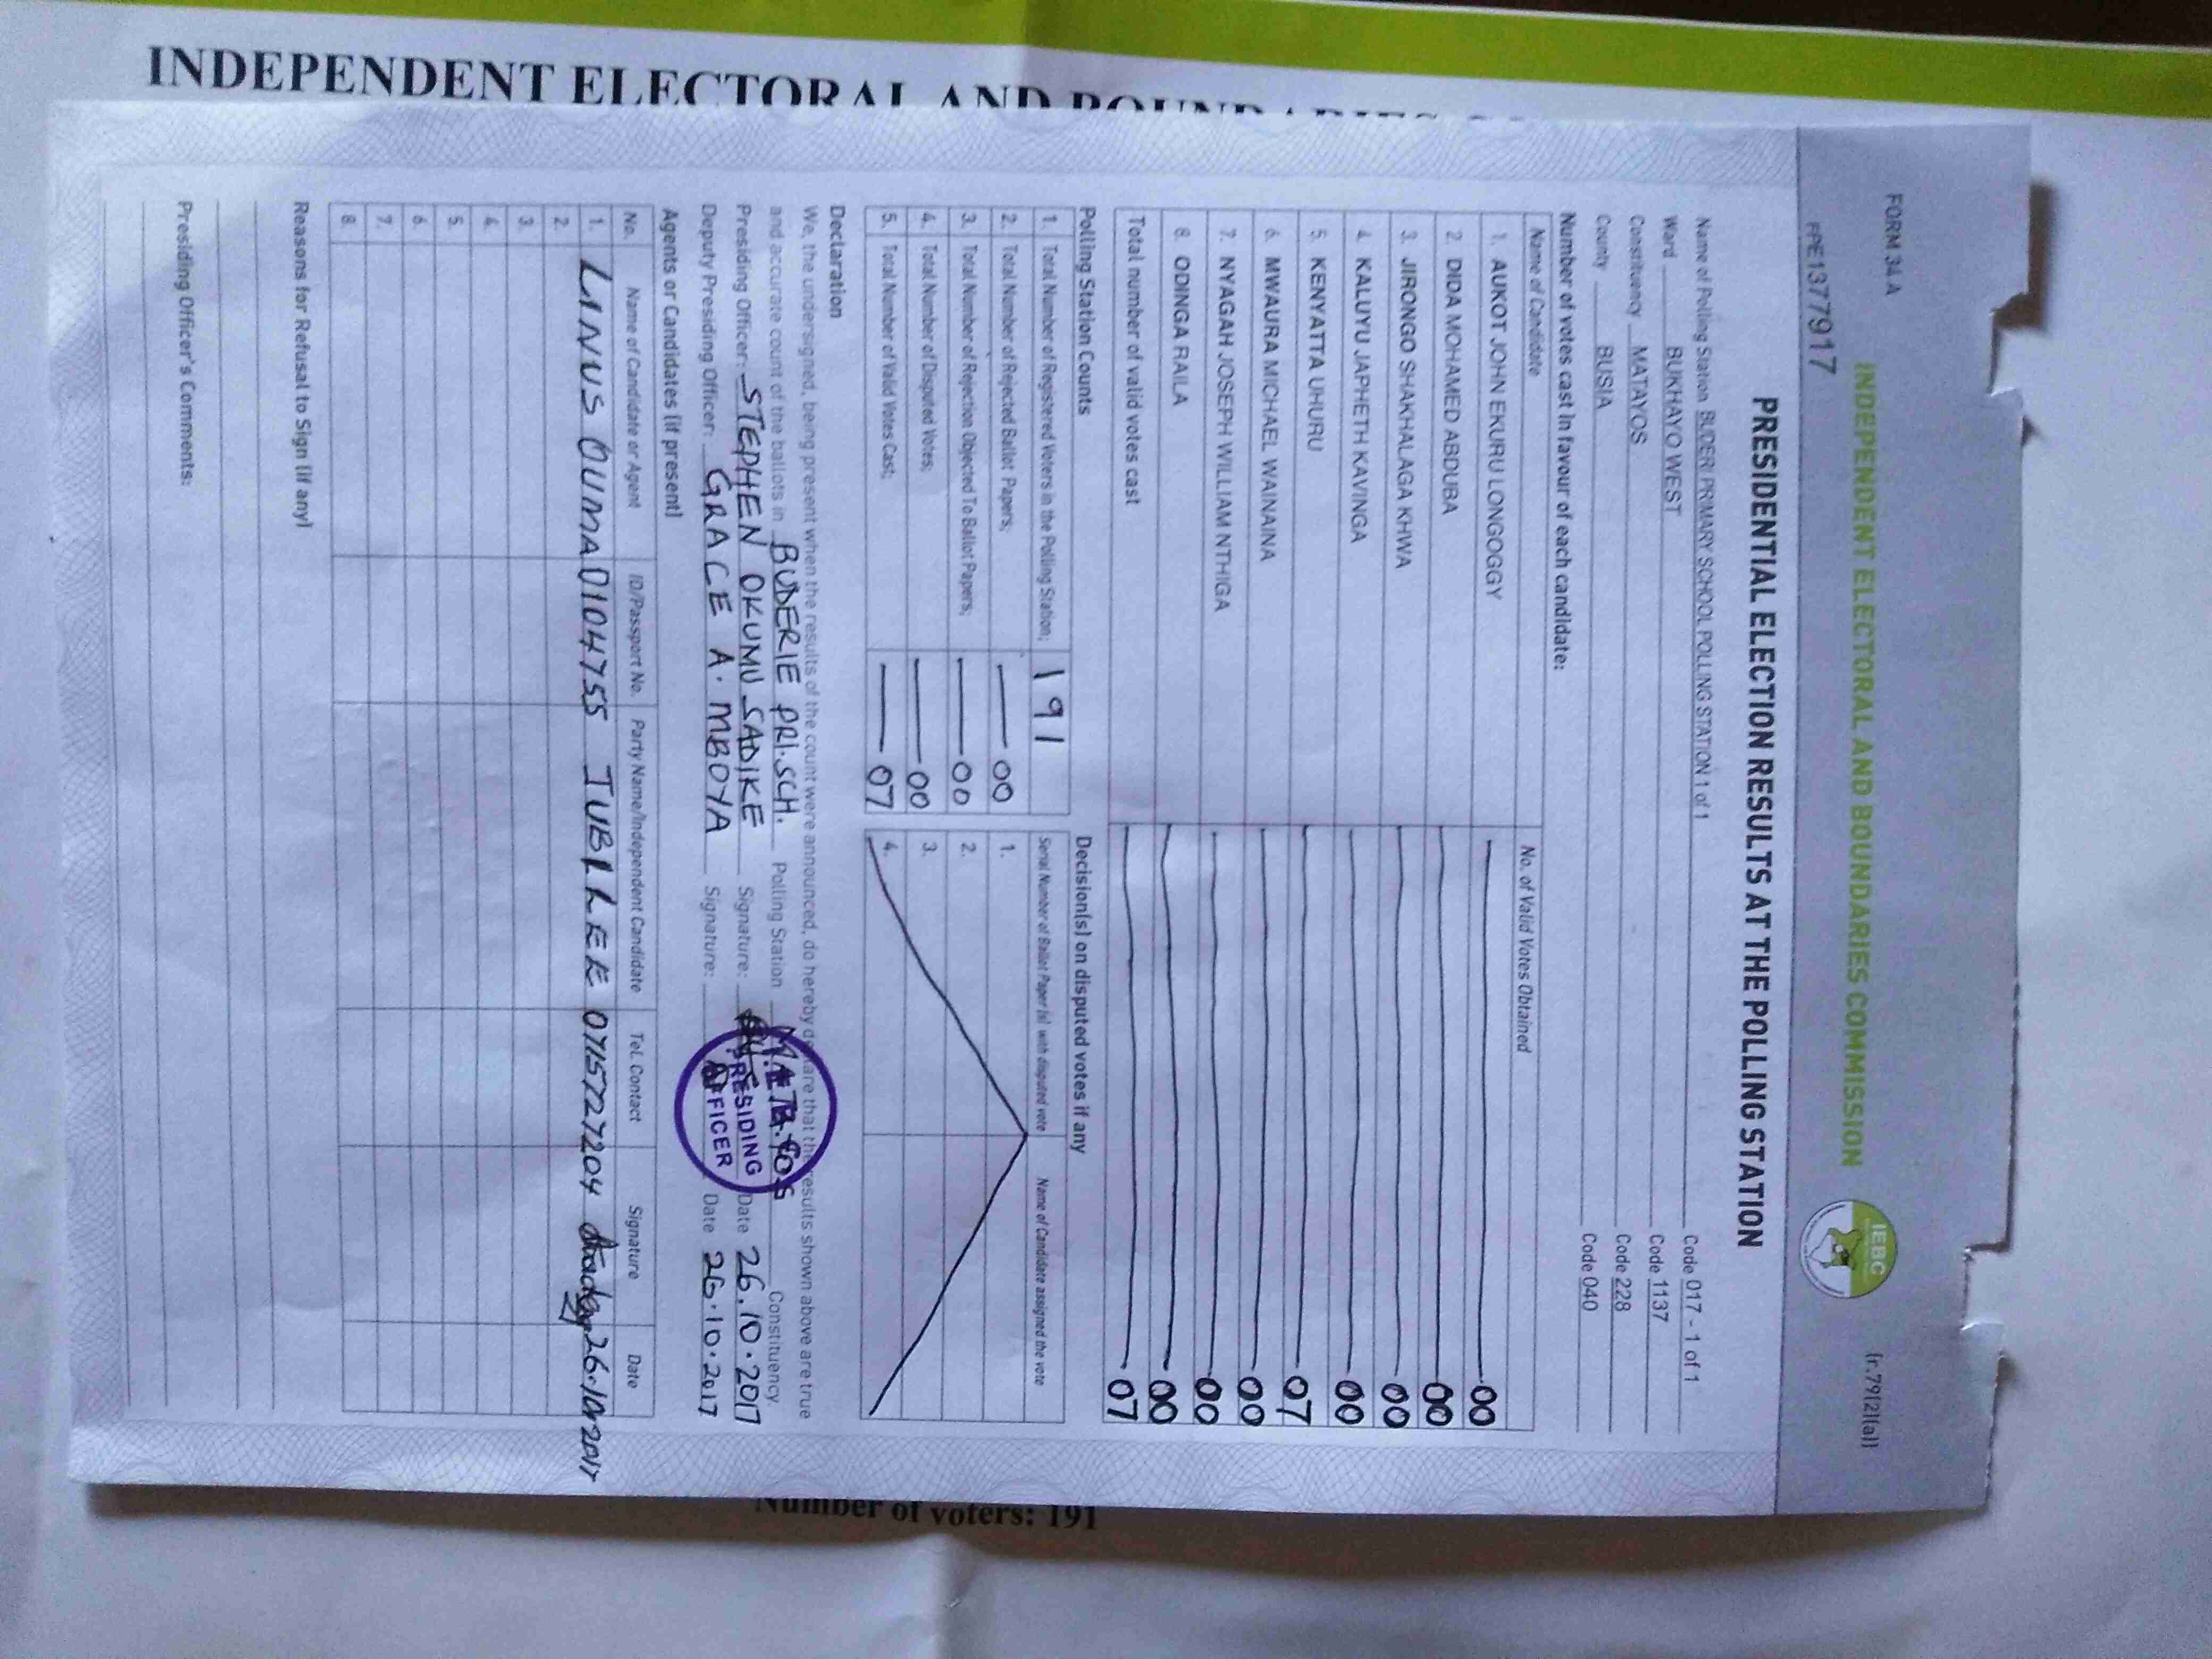 INDEPENDENT ELECTORAL AND BOUNDARIES
FORM 34 A
(r.79(2)(a))
INDEPENDENT ELECTORAL AND BOUNDARIES COMMISSION
IEBC
FPE1377917
PRESIDENTIAL ELECTION RESULTS AT THE POLLING STATION
Name of Polling Station BUDERI PRIMARY SCHOOL POLLING STATION 1 of 1 Code 017 - 1 of 1
Ward BUKHAYO WEST Code 1137
Constituency MATAYOS Code 228
County BUSIA Code 040
Number of votes cast in favour of each candidate:
Name of Candidate No. of Valid Votes Obtained
1. AUKOT JOHN EKURU LONGOGGY 00
2. DIDA MOHAMED ABDUBA 00
3. JIRONGO SHAKHALAGA KHWA 00
4. KALUYU JAPHETH KAVINGA 00
5. KENYATTA UHURU 07
6. MWAURA MICHAEL WAINAINA 00
7. NYAGAH JOSEPH WILLIAM NTHIGA 00
8. ODINGA RAILA 00
Total number of valid votes cast 07
Polling Station Counts
1. Total Number of Registered Voters in the Polling Station; 191
2. Total Number of Rejected Ballot Papers; 00
3. Total Number of Rejection Objected To Ballot Papers; 00
4. Total Number of Disputed Votes; 00
5. Total Number of Valid Votes Cast; 07
Decision(s) on disputed votes if any
Serial Number of Ballot Paper (s) with disputed vote Name of Candidate assigned the vote
1.
2.
3.
4.
Declaration
We, the undersigned, being present when the results of the count were announced, do hereby declare that the results shown above are true
and accurate count of the ballots in BUDERIE PRI.SCH. Polling Station Constituency
Presiding Officer: STEPHEN OKUMU SADIKE Signature: Date 26.10.2017
Deputy Presiding Officer: GRACE A. MBOYA Signature: Date 26.10.2017
PRESIDING
OFFICER
Agents or Candidates (if present)
No. Name of Candidate or Agent ID/Passport No. Party Name/Independent Candidate Tel. Contact Signature Date
1. LINUS OUMA 0104755 JUBILEE 0715727204 26.10.2017
2.
3.
4.
5.
6.
7.
8.
Reasons for Refusal to Sign (if any)
Presiding Officer's Comments:
Number of voters: 191